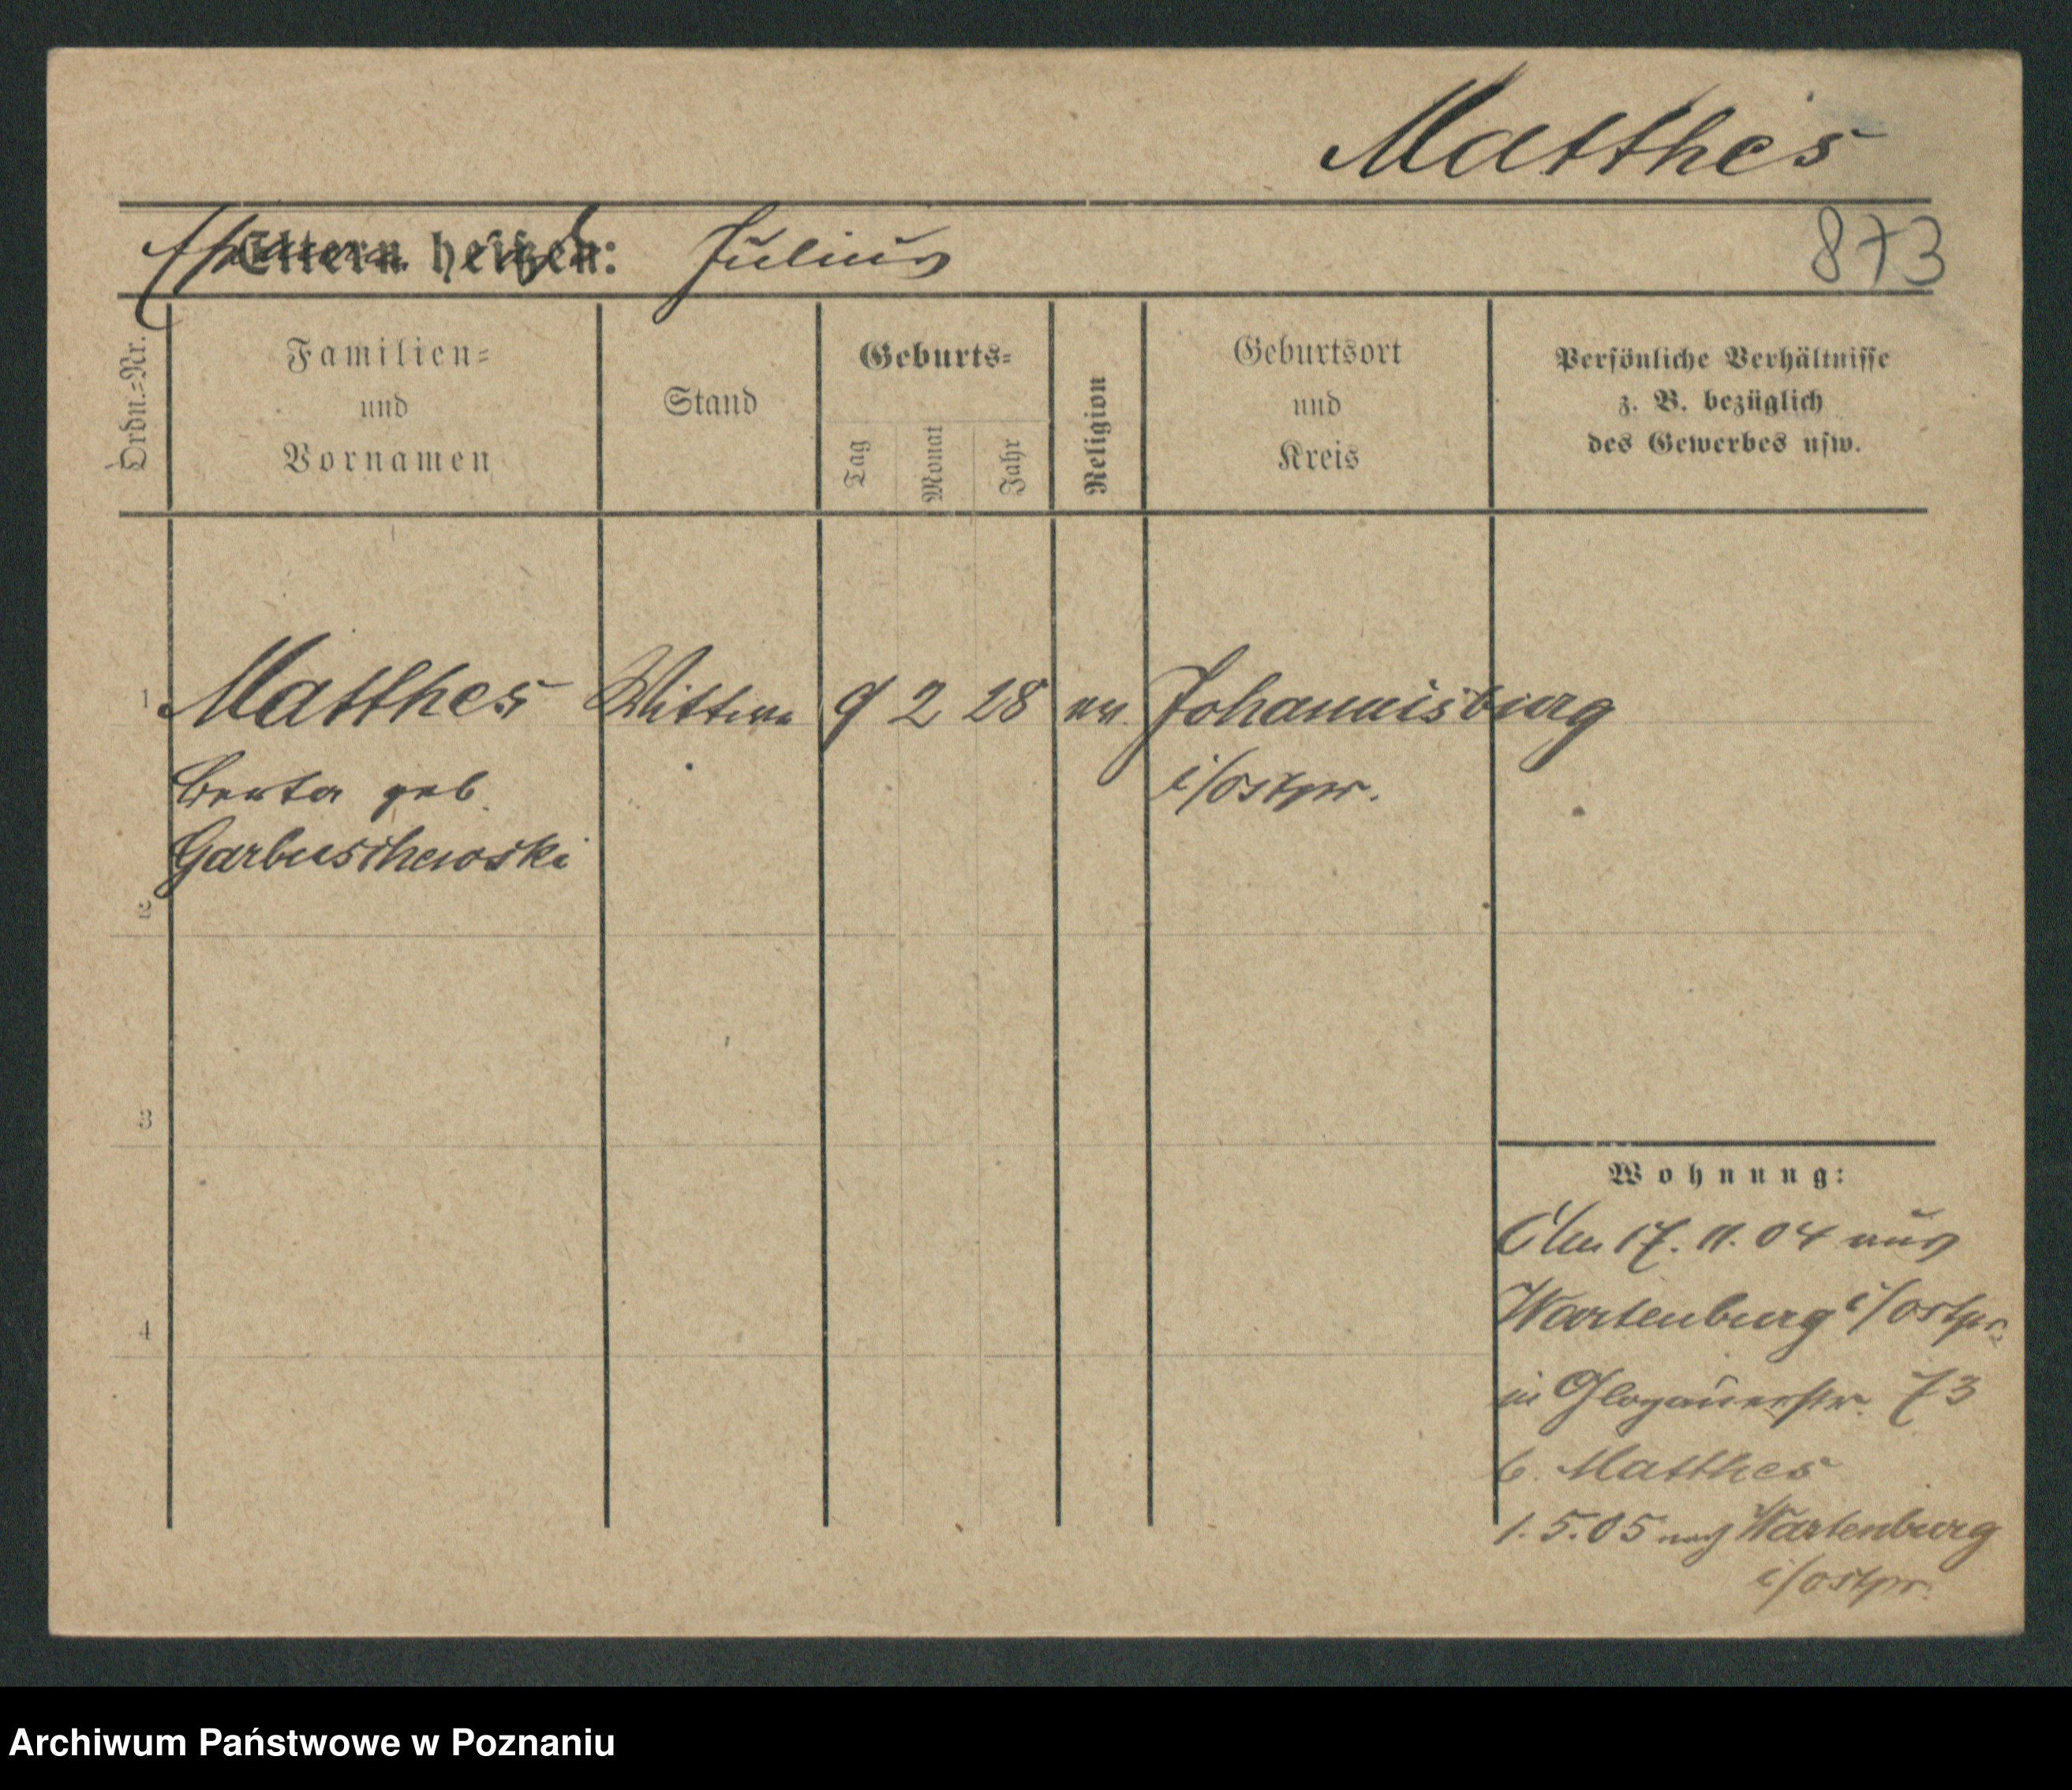 Matthes
Eltern heißen: Julius
873
Ordn.=Nr.
Familien=
und
Vornamen
Stand
Geburts=
Tag
Monat
Jahr
Religion
Geburtsort
und
Kreis
Persönliche Verhältnisse
z. B. bezüglich
des Gewerbes usw.
1 Matthes Wittwe 9 2 28 ev. Johannisburg
Berta geb. i/Ostpr.
Garbuschewski
2
3
4
Wohnung:
17. 11. 04 aus
Wartenburg i/Ostpr.
in Glogauerstr. 73
b. Matthes
1. 5. 05 nach Wartenburg
i/Ostpr.
Archiwum Państwowe w Poznaniu